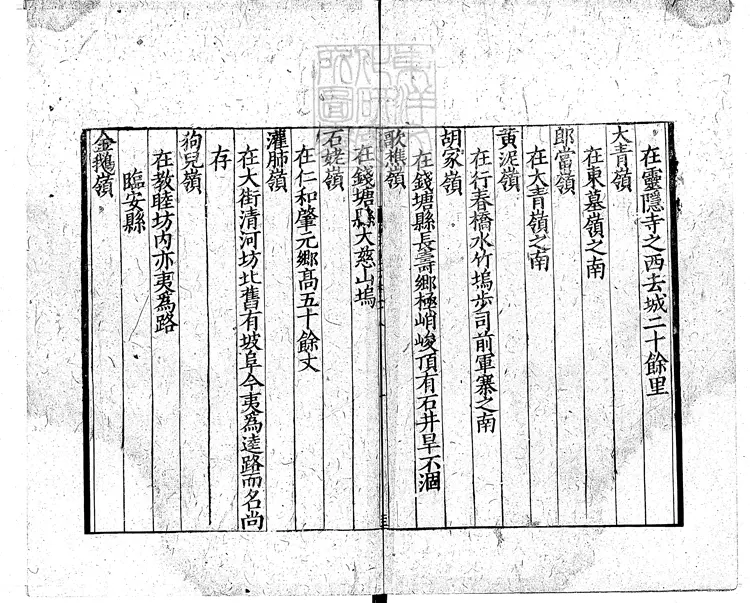 在靈隱寺之西去城二十餘里
大青嶺
在東墓嶺之南
郎當嶺
在大青嶺之南
黃泥嶺
在行春橋水竹塢步司前軍寨之南
胡家嶺
在錢塘縣長壽鄉極峭峻頂有石井旱不涸
歌樵嶺
在錢塘縣大慈山塢
石姥嶺
在仁和肇元鄉高五十餘丈
灌肺嶺
在大街清河坊北舊有坡阜今夷爲逵路而名尚
存
狗兒嶺
在教睦坊内亦夷爲路
臨安縣
金鵝嶺